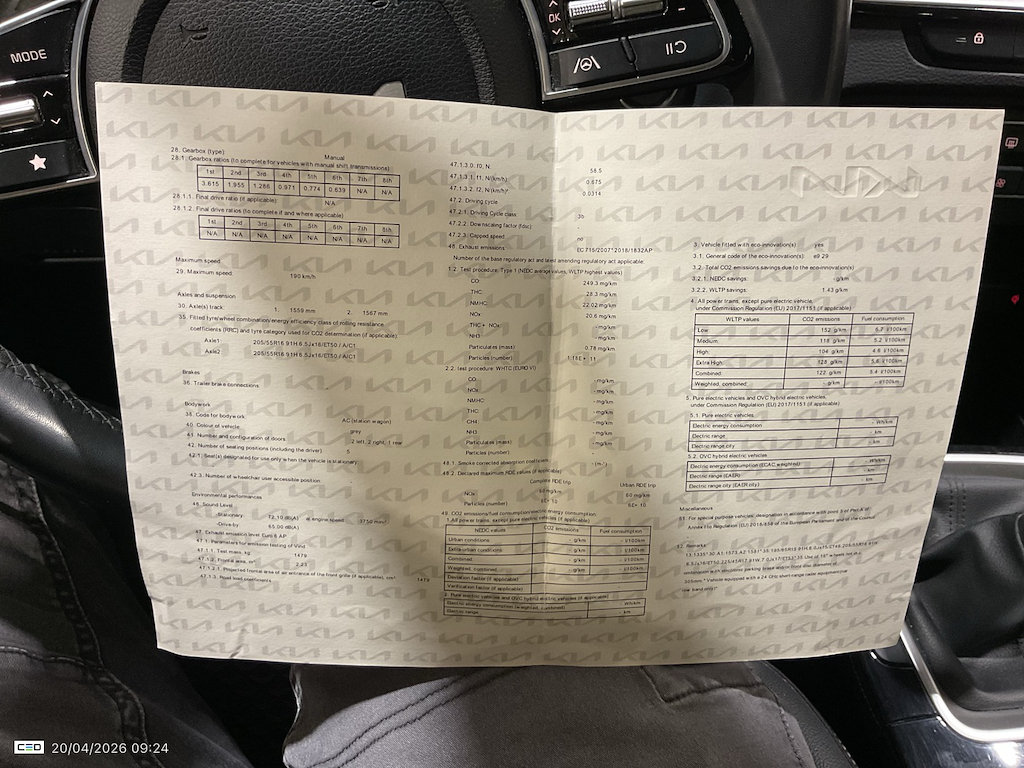 MODE
OK
KIA
28. Gearbox (type): Manual
28.1. Gearbox ratios (to complete for vehicles with manual shift transmissions)
1st 2nd 3rd 4th 5th 6th 7th 8th
3.615 1.955 1.286 0.971 0.774 0.639 N/A N/A
28.1.1. Final drive ratio (if applicable): N/A
28.1.2. Final drive ratios (to complete if and where applicable)
1st 2nd 3rd 4th 5th 6th 7th 8th
N/A N/A N/A N/A N/A N/A N/A N/A
Maximum speed
29. Maximum speed: 190 km/h
Axles and suspension
30. Axle(s) track: 1. 1559 mm 2. 1567 mm
35. Fitted tyre/wheel combination/energy efficiency class of rolling resistance
coefficients (RRC) and tyre category used for CO2 determination (if applicable)
Axle1 205/55R16 91H 6.5Jx16/ET50 / A/C1
Axle2 205/55R16 91H 6.5Jx16/ET50 / A/C1
Brakes
36. Trailer brake connections
Bodywork
38. Code for bodywork AC (station wagon)
40. Colour of vehicle grey
41. Number and configuration of doors 2 left, 2 right, 1 rear
42. Number of seating positions (including the driver) 5
42.1. Seat(s) designated for use only when the vehicle is stationary:
42.3. Number of wheelchair user accessible position
Environmental performances
46. Sound Level
-Stationary 72.10 dB(A) at engine speed 3750 min-1
-Drive-by 65.00 dB(A)
47. Exhaust emission level Euro 6 AP
47.1. Parameters for emission testing of Vind
47.1.1. Test mass, kg 1479
47.1.2. Frontal area, m² 2.23
47.1.2.1. Projected frontal area of air entrance of the front grille (if applicable), cm² 1419
47.1.3. Road load coefficients
47.1.3.0. f0, N: 58.5
47.1.3.1. f1, N/(km/h): 0.675
47.1.3.2. f2, N/(km/h)² 0.0314
47.2. Driving cycle
47.2.1. Driving Cycle class 3b
47.2.2. Downscaling factor (fdsc)
47.2.3. Capped speed no
48. Exhaust emissions EC 715/2007*2018/1832AP
Number of the base regulatory act and latest amending regulatory act applicable:
1.2. Test procedure: Type 1 (NEDC average values, WLTP highest values)
CO 249.3 mg/km
THC 28.3 mg/km
NMHC 22.02 mg/km
NOx 20.6 mg/km
THC + NOx - mg/km
NH3 - mg/km
Particulates (mass) 0.78 mg/km
Particles (number) 1.18E+ 11
2.2. Test procedure: WHTC (EURO VI)
CO - mg/km
NOx - mg/km
NMHC - mg/km
THC - mg/km
CH4 - mg/km
NH3 - mg/km
Particulates (mass) - mg/km
Particles (number)
48.1. Smoke corrected absorption coefficient - (m-1)
48.2. Declared maximum RDE values (if applicable)
Complete RDE trip Urban RDE trip
NOx 60 mg/km 60 mg/km
Particles (number) 6E+ 10 6E+ 10
49. CO2 emissions/fuel consumption/electric energy consumption:
1.All power trains, except pure electric vehicles (if applicable)
NEDC values CO2 emissions Fuel consumption
Urban conditions - g/km - l/100km
Extra-urban conditions - g/km - l/100km
Combined: - g/km - l/100km
Weighted, combined - g/km - l/100km
Deviation factor (if applicable)
Verification factor (if applicable)
2. Pure electric vehicles and OVC hybrid electric vehicles (if applicable)
Electric energy consumption (weighted, combined) Wh/km
Electric range km
3. Vehicle fitted with eco-innovation(s) yes
3.1. General code of the eco-innovation(s): e9 29
3.2. Total CO2 emissions savings due to the eco-innovation(s)
3.2.1. NEDC savings: - g/km
3.2.2. WLTP savings: 1.43 g/km
4. All power trains, except pure electric vehicle,
under Commission Regulation (EU) 2017/1151 (if applicable)
WLTP values CO2 emissions Fuel consumption
Low: 152 g/km 6.7 l/100km
Medium: 118 g/km 5.2 l/100km
High: 104 g/km 4.6 l/100km
Extra High: 128 g/km 5.6 l/100km
Combined: 122 g/km 5.4 l/100km
Weighted, combined - g/km - l/100km
5. Pure electric vehicles and OVC hybrid electric vehicles,
under Commission Regulation (EU) 2017/1151 (if applicable)
5.1. Pure electric vehicles
Electric energy consumption - Wh/km
Electric range - km
Electric range city - km
5.2. OVC hybrid electric vehicles
Electric energy consumption (ECAC,weighted) - Wh/km
Electric range (EAER) - km
Electric range city (EAER city) - km
Miscellaneous
51. For special purpose vehicles: designation in accordance with point 5 of Part A of
Annex I to Regulation (EU) 2018/858 of the European Parliament and of the Council
52. Remarks
CEO 20/04/2026 09:24